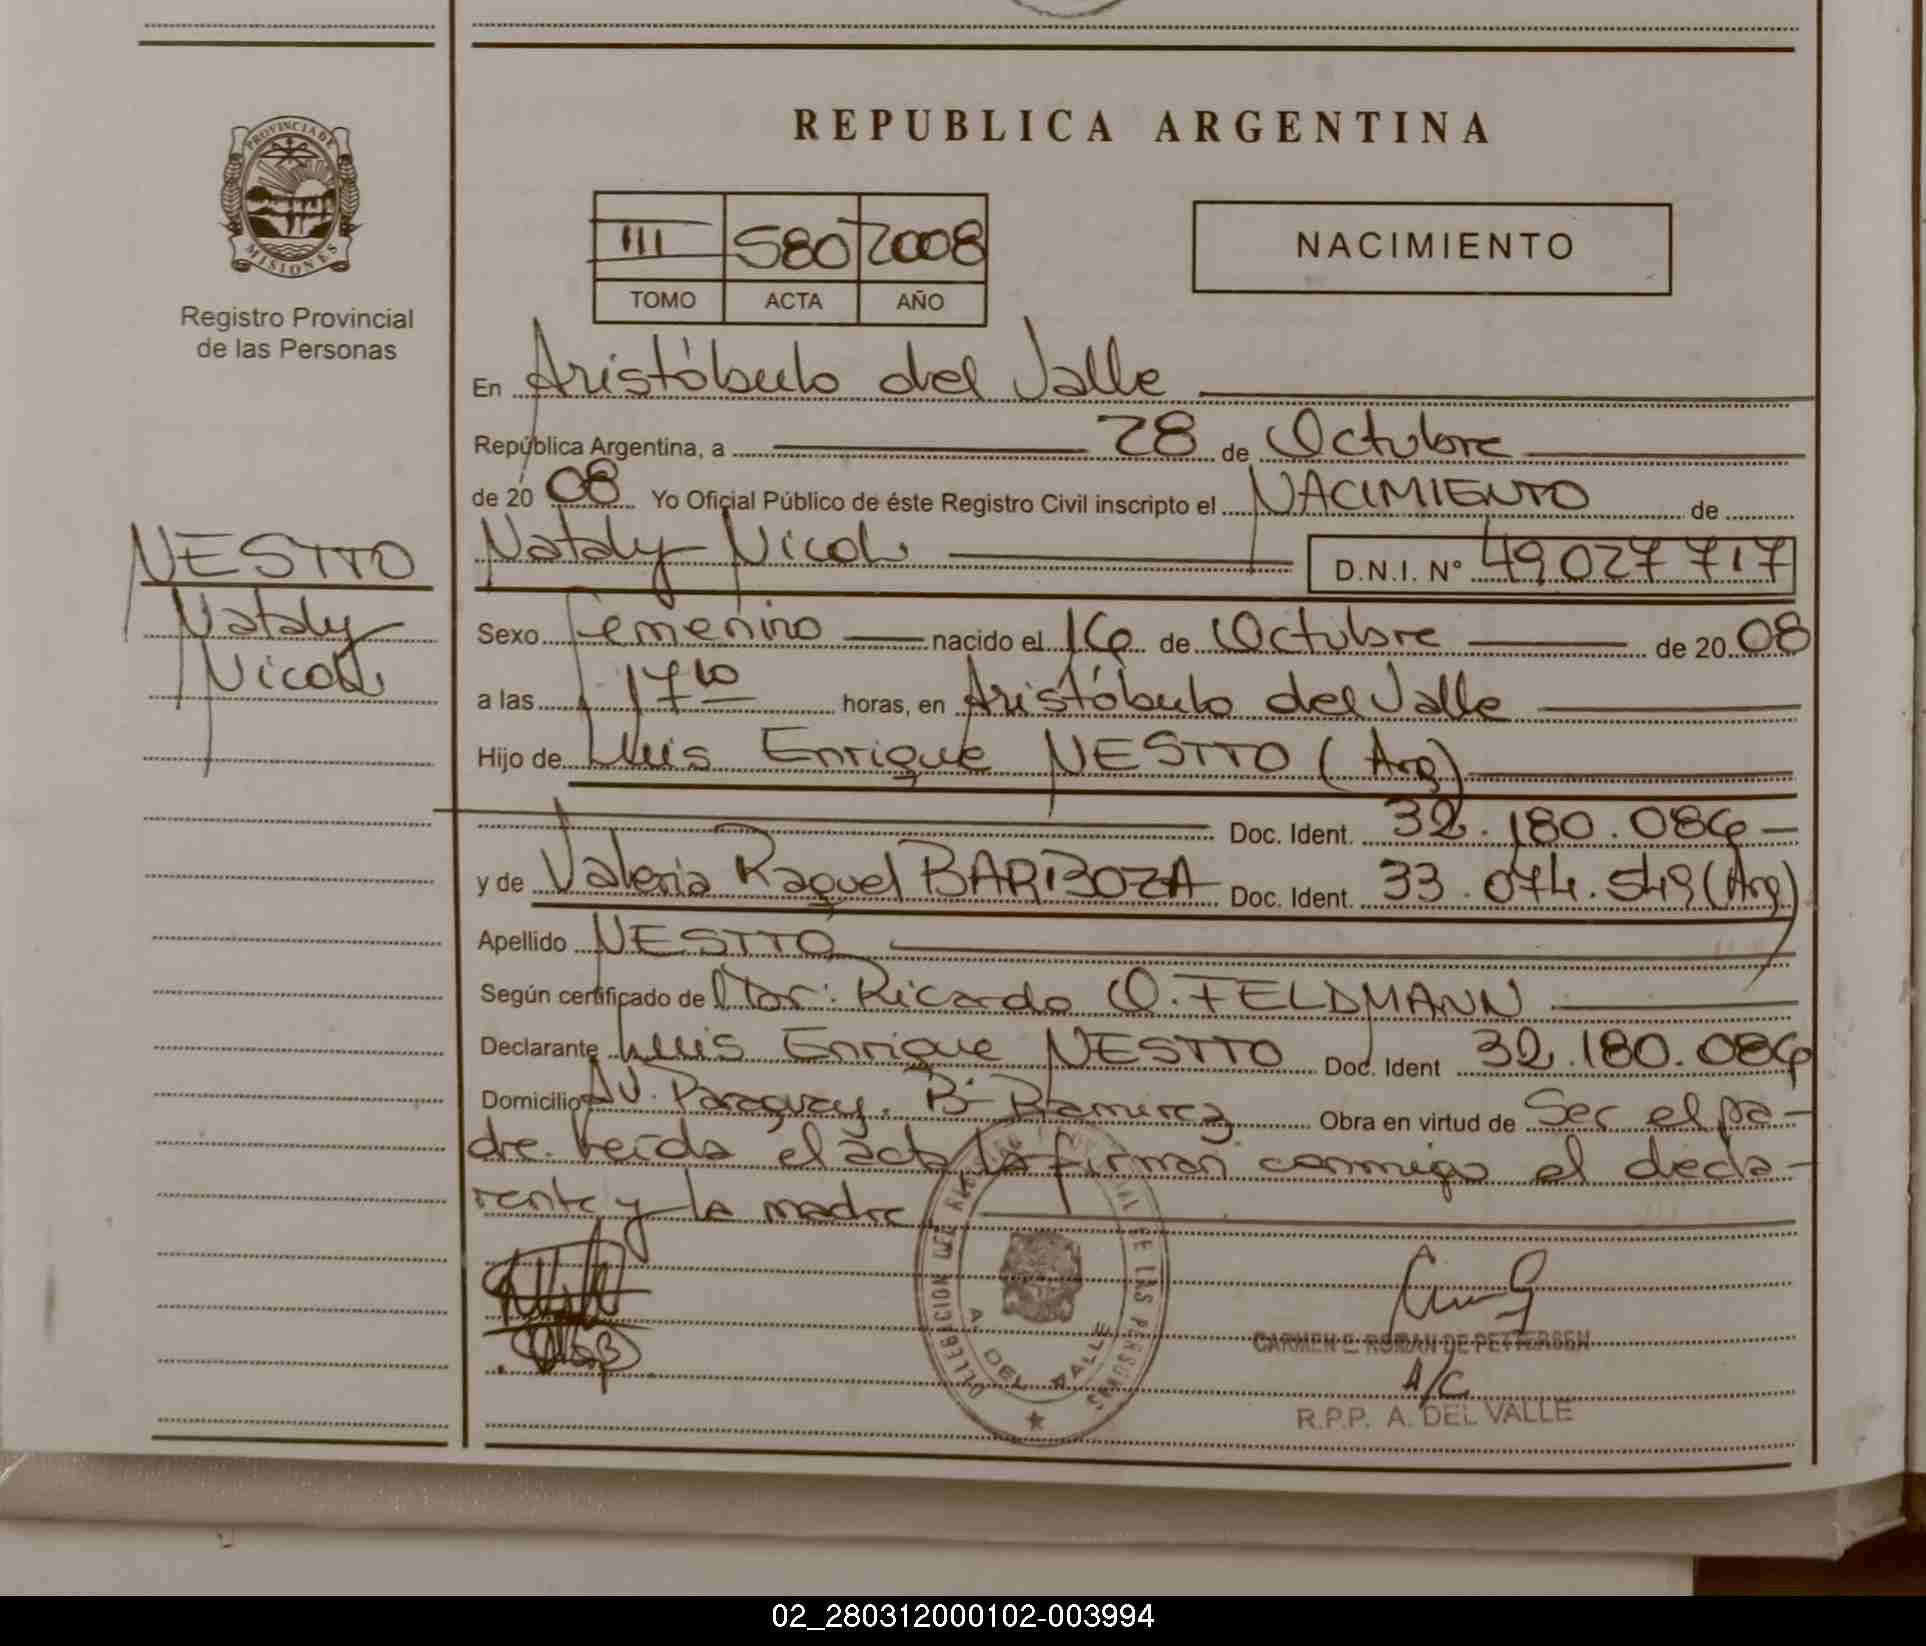 REPUBLICA ARGENTINA
PROVINCIA DE
MISIONES
Registro Provincial
de las Personas
III 580 2008
TOMO ACTA AÑO
NACIMIENTO
En Aristóbulo del Valle
República Argentina, a 28 de Octubre
de 20 08 Yo Oficial Público de éste Registro Civil inscripto el NACIMIENTO de
NESTTO
Nataly
Nicole
Nataly Nicole D.N.I. N° 49027717
Sexo Femenino nacido el 16 de Octubre de 20 08
a las 17 10 horas, en Aristóbulo del Valle
Hijo de Luis Enrique NESTTO (Arg)
Doc. Ident. 32.180.086
y de Valeria Raquel BARBOZA Doc. Ident. 33.074.549 (Arg)
Apellido NESTTO
Según certificado de Dor: Ricardo O. FELDMANN
Declarante Luis Enrique NESTTO Doc. Ident 32.180.086
Domicilio AV. Paraguay. B- Ramirez Obra en virtud de Ser el pa-
dre. Leída el acta la firman conmigo el decla-
rante y la madre.
DELEGACION DEL REGISTRO PROVINCIAL DE LAS PERSONAS
A. DEL VALLE
CARMEN E. ROMAN DE PETTERSEN
A/C
R.P.P. A. DEL VALLE
02_280312000102-003994